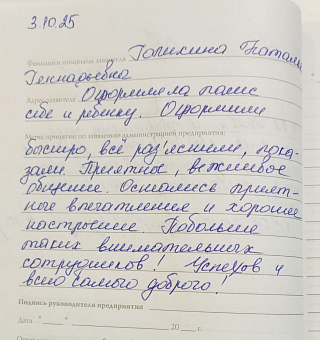 3.10.25
Фамилия и инициалы заявителя Голихина Наталья
Геннадьевна
Адрес заявителя Оформляла полис
себе и ребёнку. Оформили
Меры, принятые по заявлению администрацией предприятия:
быстро, всё раз'яснили, пока-
зали. Приятное, вежливое
общение. Остались прият-
ное впечатление и хорошее
настроение. Побольше
таких внимательных
сотрудников! Успехов и
всего самого доброго!
Подпись руководителя предприятия
Дата " " 20 г.